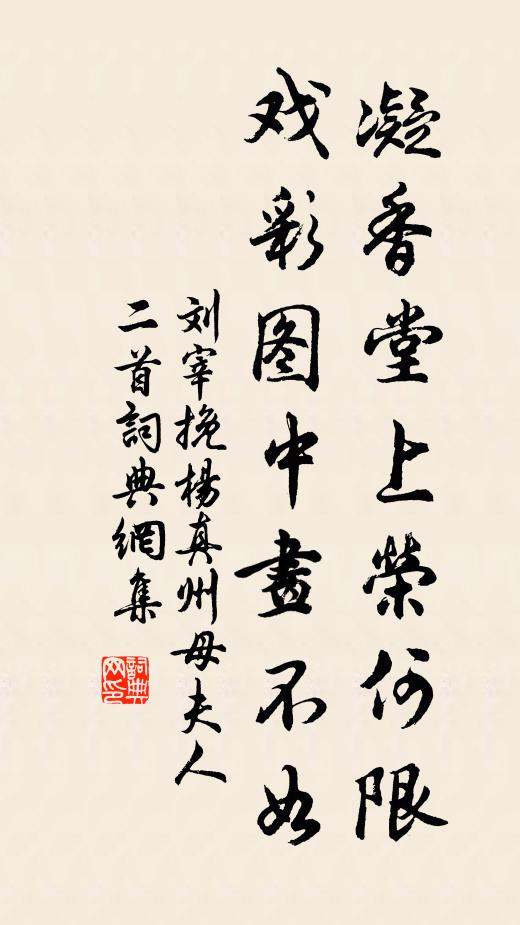 凝香堂上榮何限
戏彩图中畫不如
刘宰挽楊真州母夫人
二首詞典網集
詞典
网印